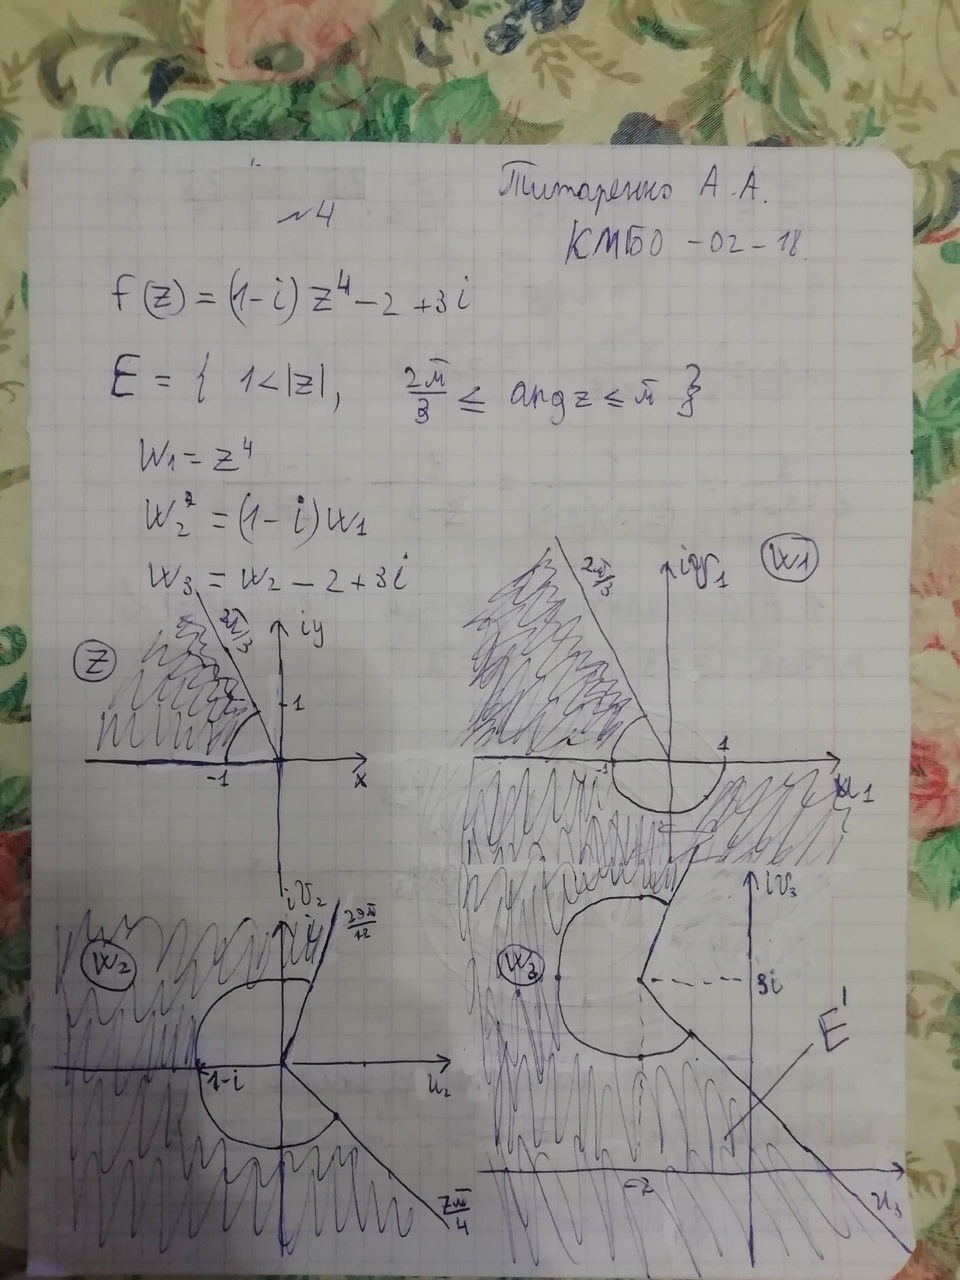 №4
Титаренко А.А.
КМБО-02-18
f(z) = (1-i) z⁴ - 2 + 3i
E = { 1<|z|, 2π/3 ≤ arg z ≤ π }
W₁ = z⁴
W₂ = (1-i)W₁
W₃ = W₂ - 2 + 3i
z
2π/3
iy
1
-1
x
W1
2π/3
iv₁
-1
1
u₁
W₂
iv₂
29π/12
-i
u₂
7π/4
W₃
iv₃
3i
E'
-2
u₃